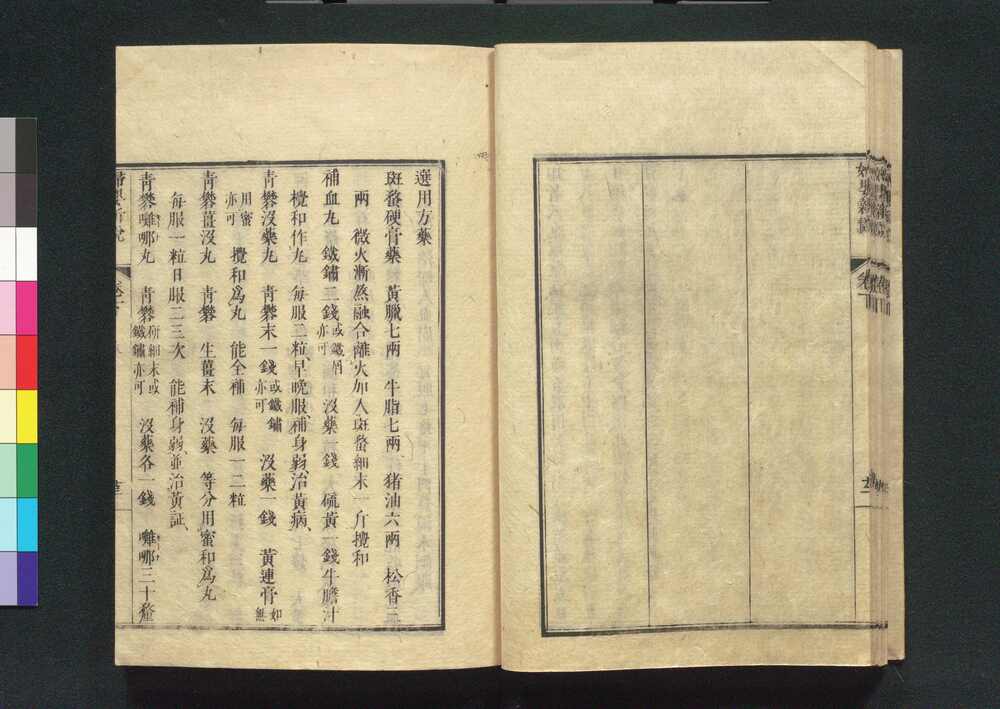 選用方藥
斑蝥硬膏藥 黃臘七兩 牛脂七兩 猪油六兩 松香三
兩 微火漸熬融合離火加入斑蝥細末一斤攪和
補血丸 鐵鏽二錢或鐵屑亦可 沒藥一錢 硫黃一錢牛膽汁
攪和作丸 每服二粒早晚服補身弱、治黃病、
青礬沒藥丸 青礬末一錢或鐵鏽亦可 沒藥一錢 黃連膏如無
用蜜亦可 攪和爲丸 能全補 每服一二粒
青礬薑沒丸 青礬 生薑末 沒藥 等分用蜜和爲丸
每服一粒日服二三次 能補身弱、並治黃証、
青礬囉哪丸 青礬研細末或鐵鏽亦可 沒藥各一錢 囉哪三十釐